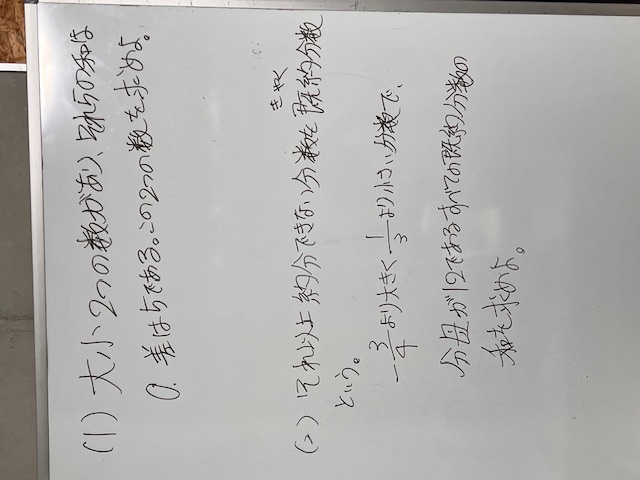 (1) 大小2つの数があり、それらの和は
0、差は5である。この2つの数を求めよ。
(2) それ以上約分できない分数を既約分数
きやく
という。
-3/4より大きく1/3より小さい分数で、
分母が12であるすべての既約分数の
和を求めよ。